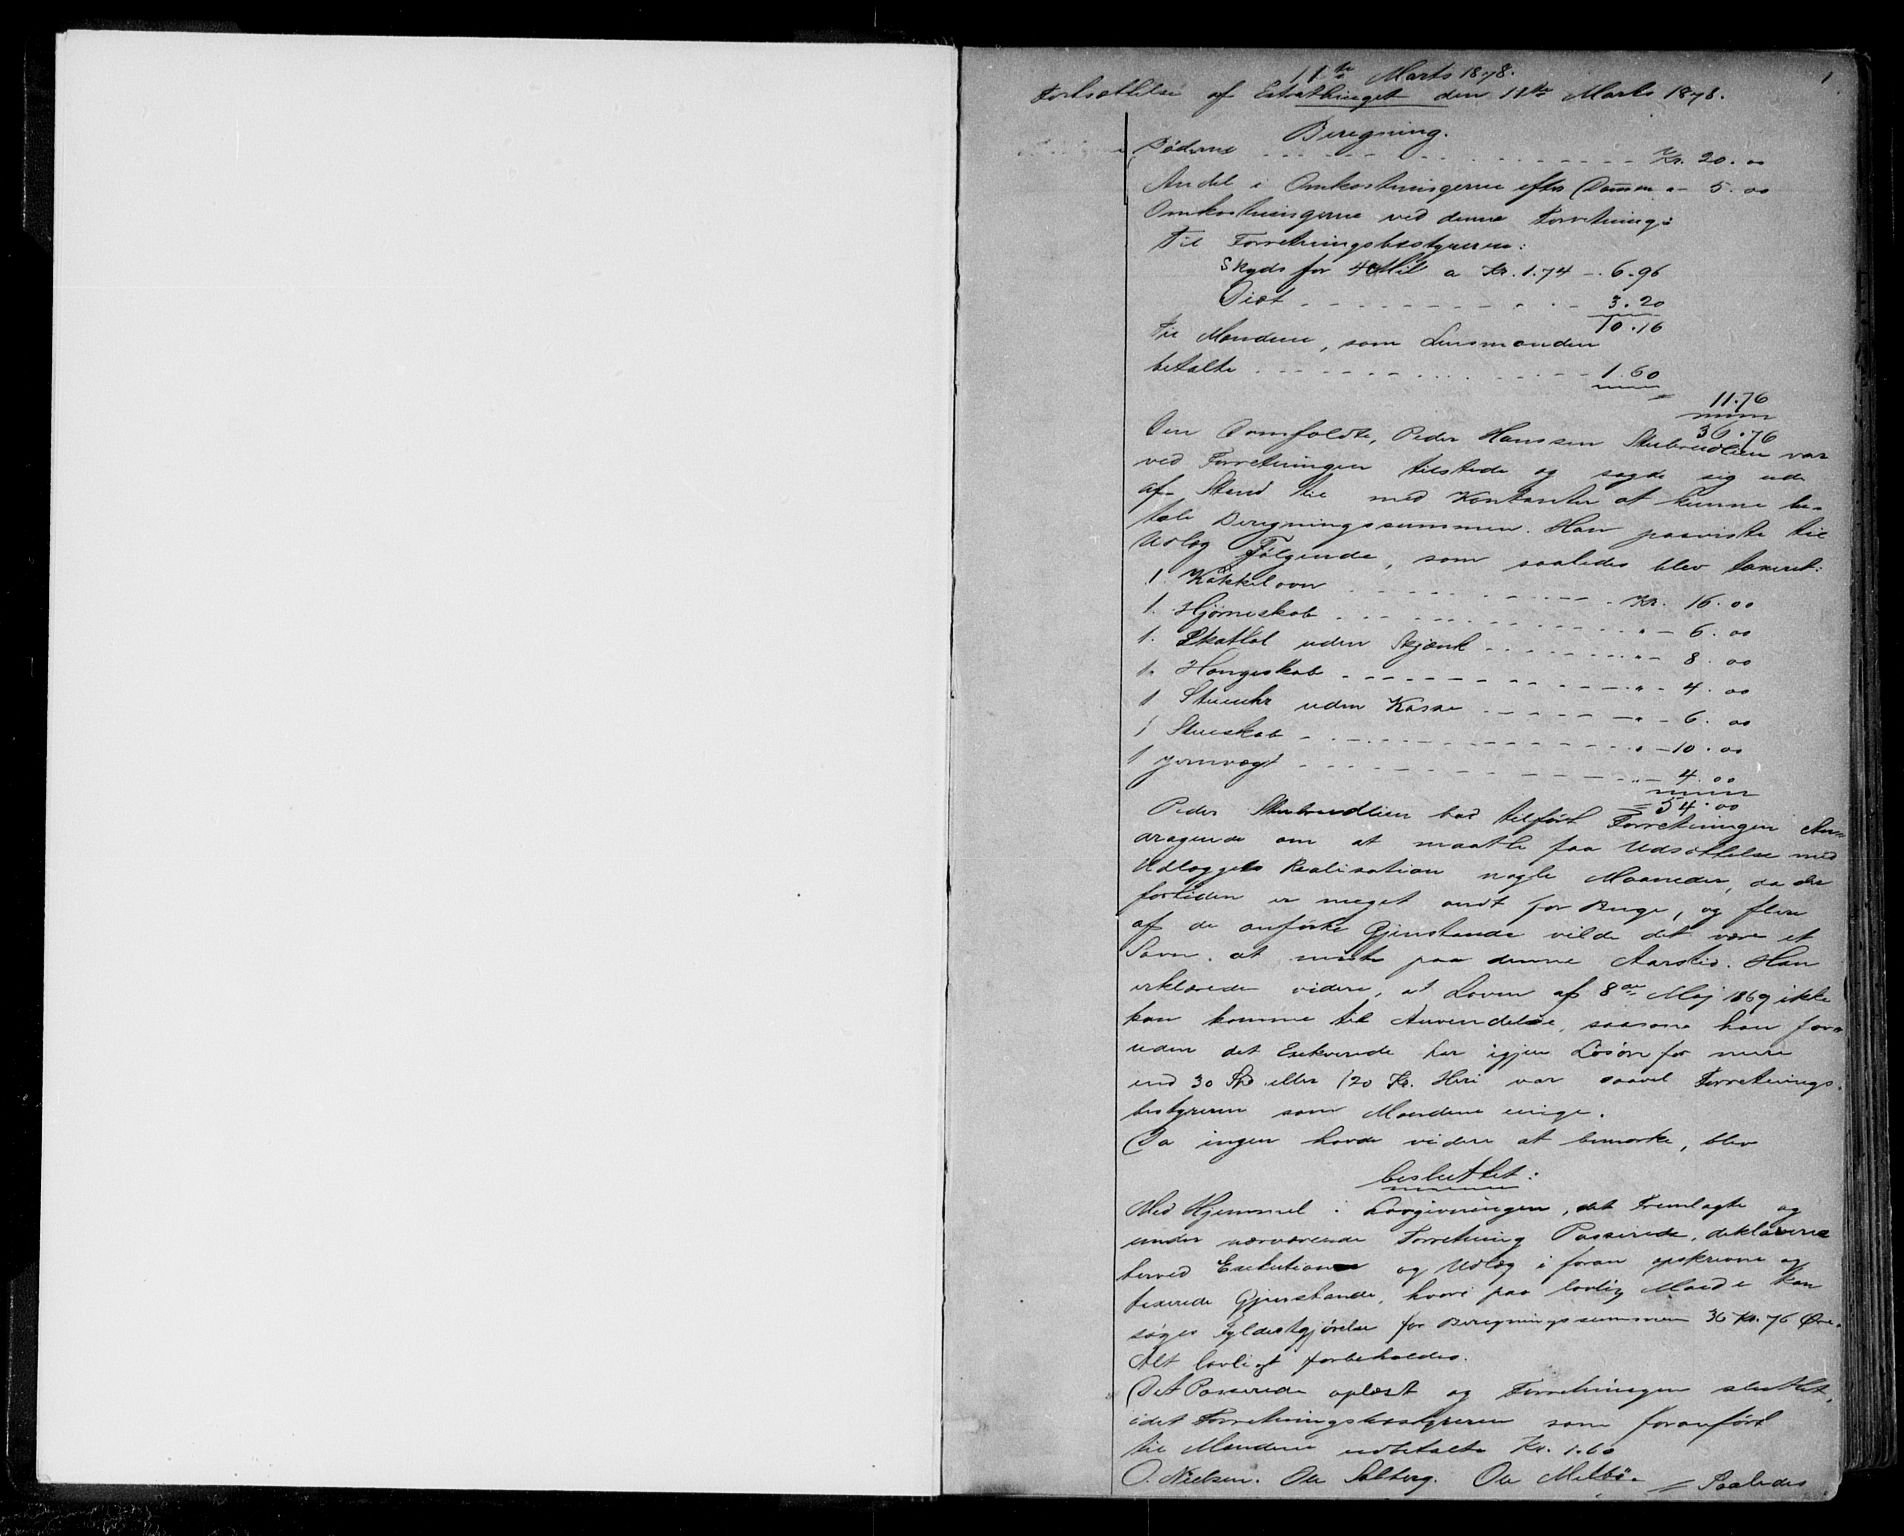 11te Marts 1878.
1
Fortsættelse af Extrathinget den 11te Marts 1878.
Beregning.
Bøderne - - - Kr. 20.00
Andel i Omkostningerne efter Dommen " - 5.00
Omkostningerne ved denne Forretning:
Til Forretningsbestyreren:
Skyds for 4 Mil a Kr. 1.74 - 6.96
Diæt - - - 3.20
10.16
Til Mændene, som Lensmanden
betalte - - - 1.60
11.76
36.76
Den Domfældte, Peder Hanssen Stubrudlien var
ved Forretningen tilstede og sagde sig ude
af Stand til med Kontanter at kunne be-
tale Beregningssummen. Han paaviste til
Udlæg Følgende, som saaledes blev taxeret:
1. Kakkelovn - - - Kr. 16.00
1. Hjørneskab - - - " - 6.00
1. Skattol uden Skjænk - - - " - 8.00
1. Hængeskab - - - " - 4.00
1 Stueuhr uden Kasse - - - " - 6.00
1 Stueskab - - - " - 10.00
1 Jernvægt - - - " - 4.00
= 54.00
Peder Stubrudlien bad tilført Forretningen An-
dragende om at maatte faa Udsættelse med
Udlæggets Realisation nogle Maaneder, da der
fortiden er meget ondt for Penge, og flere
af de anførte Gjenstande vilde det være et
Savn at miste paa denne Aarstid. Han
erklærede videre, at Loven af 8de Maj 1869 ikke
kan komme til Anvendelse, saasom han for-
uden det Exekverede har igjen Løsøre for mere
end 30 Spd eller 120 Kr. Heri var saavel Forretnings-
bestyreren som Mændene enige.
Da ingen havde videre at bemærke, blev
besluttet:
Med Hjemmel i Lovgivningen, det Fremlagte og
under nærværende Forretning Passerede, deklareres
herved Exekution og Udlæg i foran opskrevne og
taxerede Gjenstande, hvori paa lovlig Maade kan
søges Fyldestgjørelse for Beregningssummen 36 Kr. 76 Øre.
Alt lovligt forbeholdes.
Det Passerede oplæst og Forretningen sluttet,
idet Forretningsbestyreren som foranført
til Mændene udbetalte Kr. 1.60
O. Nielsen. Ole Solberg. Ole Melbö. = Saaledes